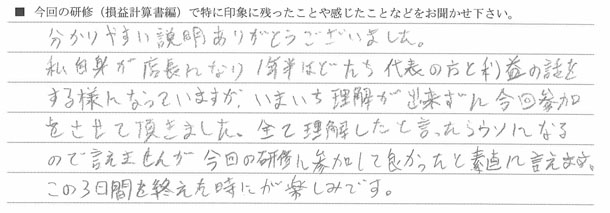 ■ 今回の研修（損益計算書編）で特に印象に残ったことや感じたことなどをお聞かせ下さい。
分かりやすい説明ありがとうございました。
私自身が店長になり1年半ほどたち代表の方と利益の話を
する様になっていますが、いまいち理解が出来ずに今回参加
をさせて頂きました。全て理解したと言ったらウソになる
ので言えませんが今回の研修に参加して良かったと素直に言えます。
この3日間を終えた時にが楽しみです。